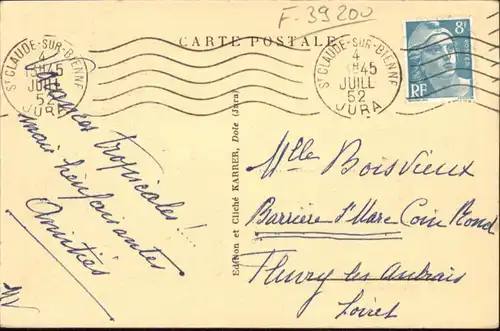 F-39200
CARTE POSTALE
ST CLAUDE-SUR-BIENNE
4
18H45
JUILL
52
JURA
ST CLAUDE-SUR-BIENNE
4
18H45
JUILL
52
JURA
8F
RF
tropicales !...
mais bienfaisantes
Amitiés
Edition et Cliché KARRER, Dole (Jura)
Mlle Boisvieux
Barrière St Marc Coin Rond
Fleury les Aubrais
Loiret